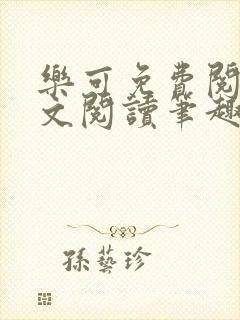 樂可免費閱
文閱讀筆趣
孫藝珍